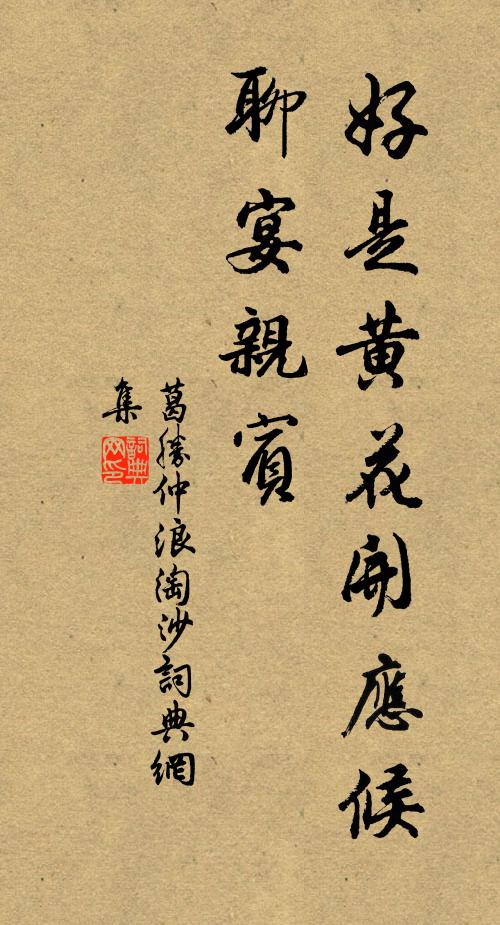 好是黄花開應候
聊宴親賓
葛勝仲浪淘沙詞典網
集
詞典
網印